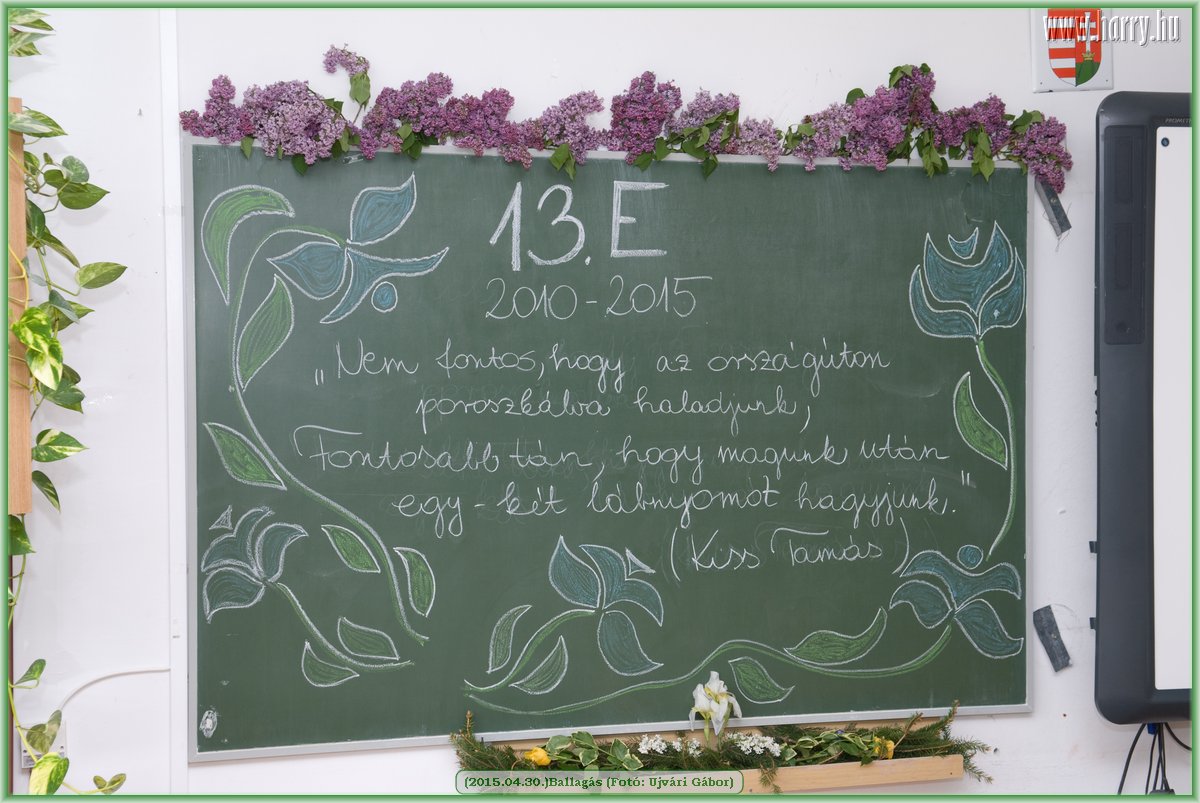 www.harry.hu
PROMETHEAN
13. E
2010-2015
„Nem fontos, hogy az országúton
poroszkálva haladjunk,
Fontosabb tán, hogy magunk után
egy-két lábnyomot hagyjunk."
(Kiss Tamás)
(2015.04.30.)Ballagás (Fotó: Ujvári Gábor)